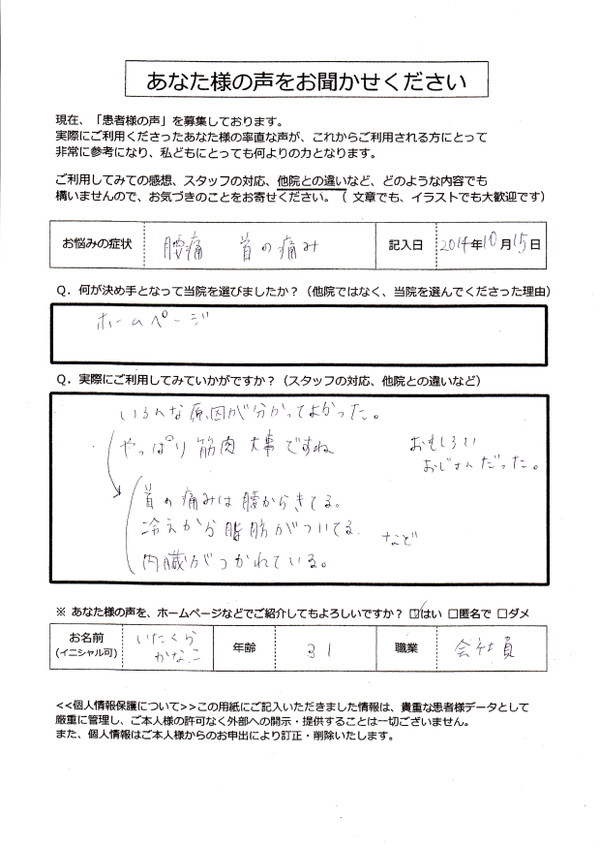 あなた様の声をお聞かせください
現在、「患者様の声」を募集しております。
実際にご利用くださったあなた様の率直な声が、これからご利用される方にとって
非常に参考になり、私どもにとっても何よりの力となります。
ご利用してみての感想、スタッフの対応、他院との違いなど、どのような内容でも
構いませんので、お気づきのことをお寄せください。（ 文章でも、イラストでも大歓迎です）
お悩みの症状 腰痛 首の痛み 記入日 2014年10月15日
Q．何が決め手となって当院を選びましたか？（他院ではなく、当院を選んでくださった理由）
ホームページ
Q．実際にご利用してみていかがですか？（スタッフの対応、他院との違いなど）
いろんな原因が分かってよかった。
やっぱり筋肉大事ですね
おもしろい
おじさんだった。
首の痛みは腰からきてる。
冷えから脂肪がついてる など
内臓がつかれている。
※ あなた様の声を、ホームページなどでご紹介してもよろしいですか？ ☑はい □匿名で □ダメ
お名前 いたくら 年齢 31 職業 会社員
(イニシャル可) かなこ
<<個人情報保護について>>この用紙にご記入いただきました情報は、貴重な患者様データとして
厳重に管理し、ご本人様の許可なく外部への開示・提供することは一切ございません。
また、個人情報はご本人様からのお申出により訂正・削除いたします。